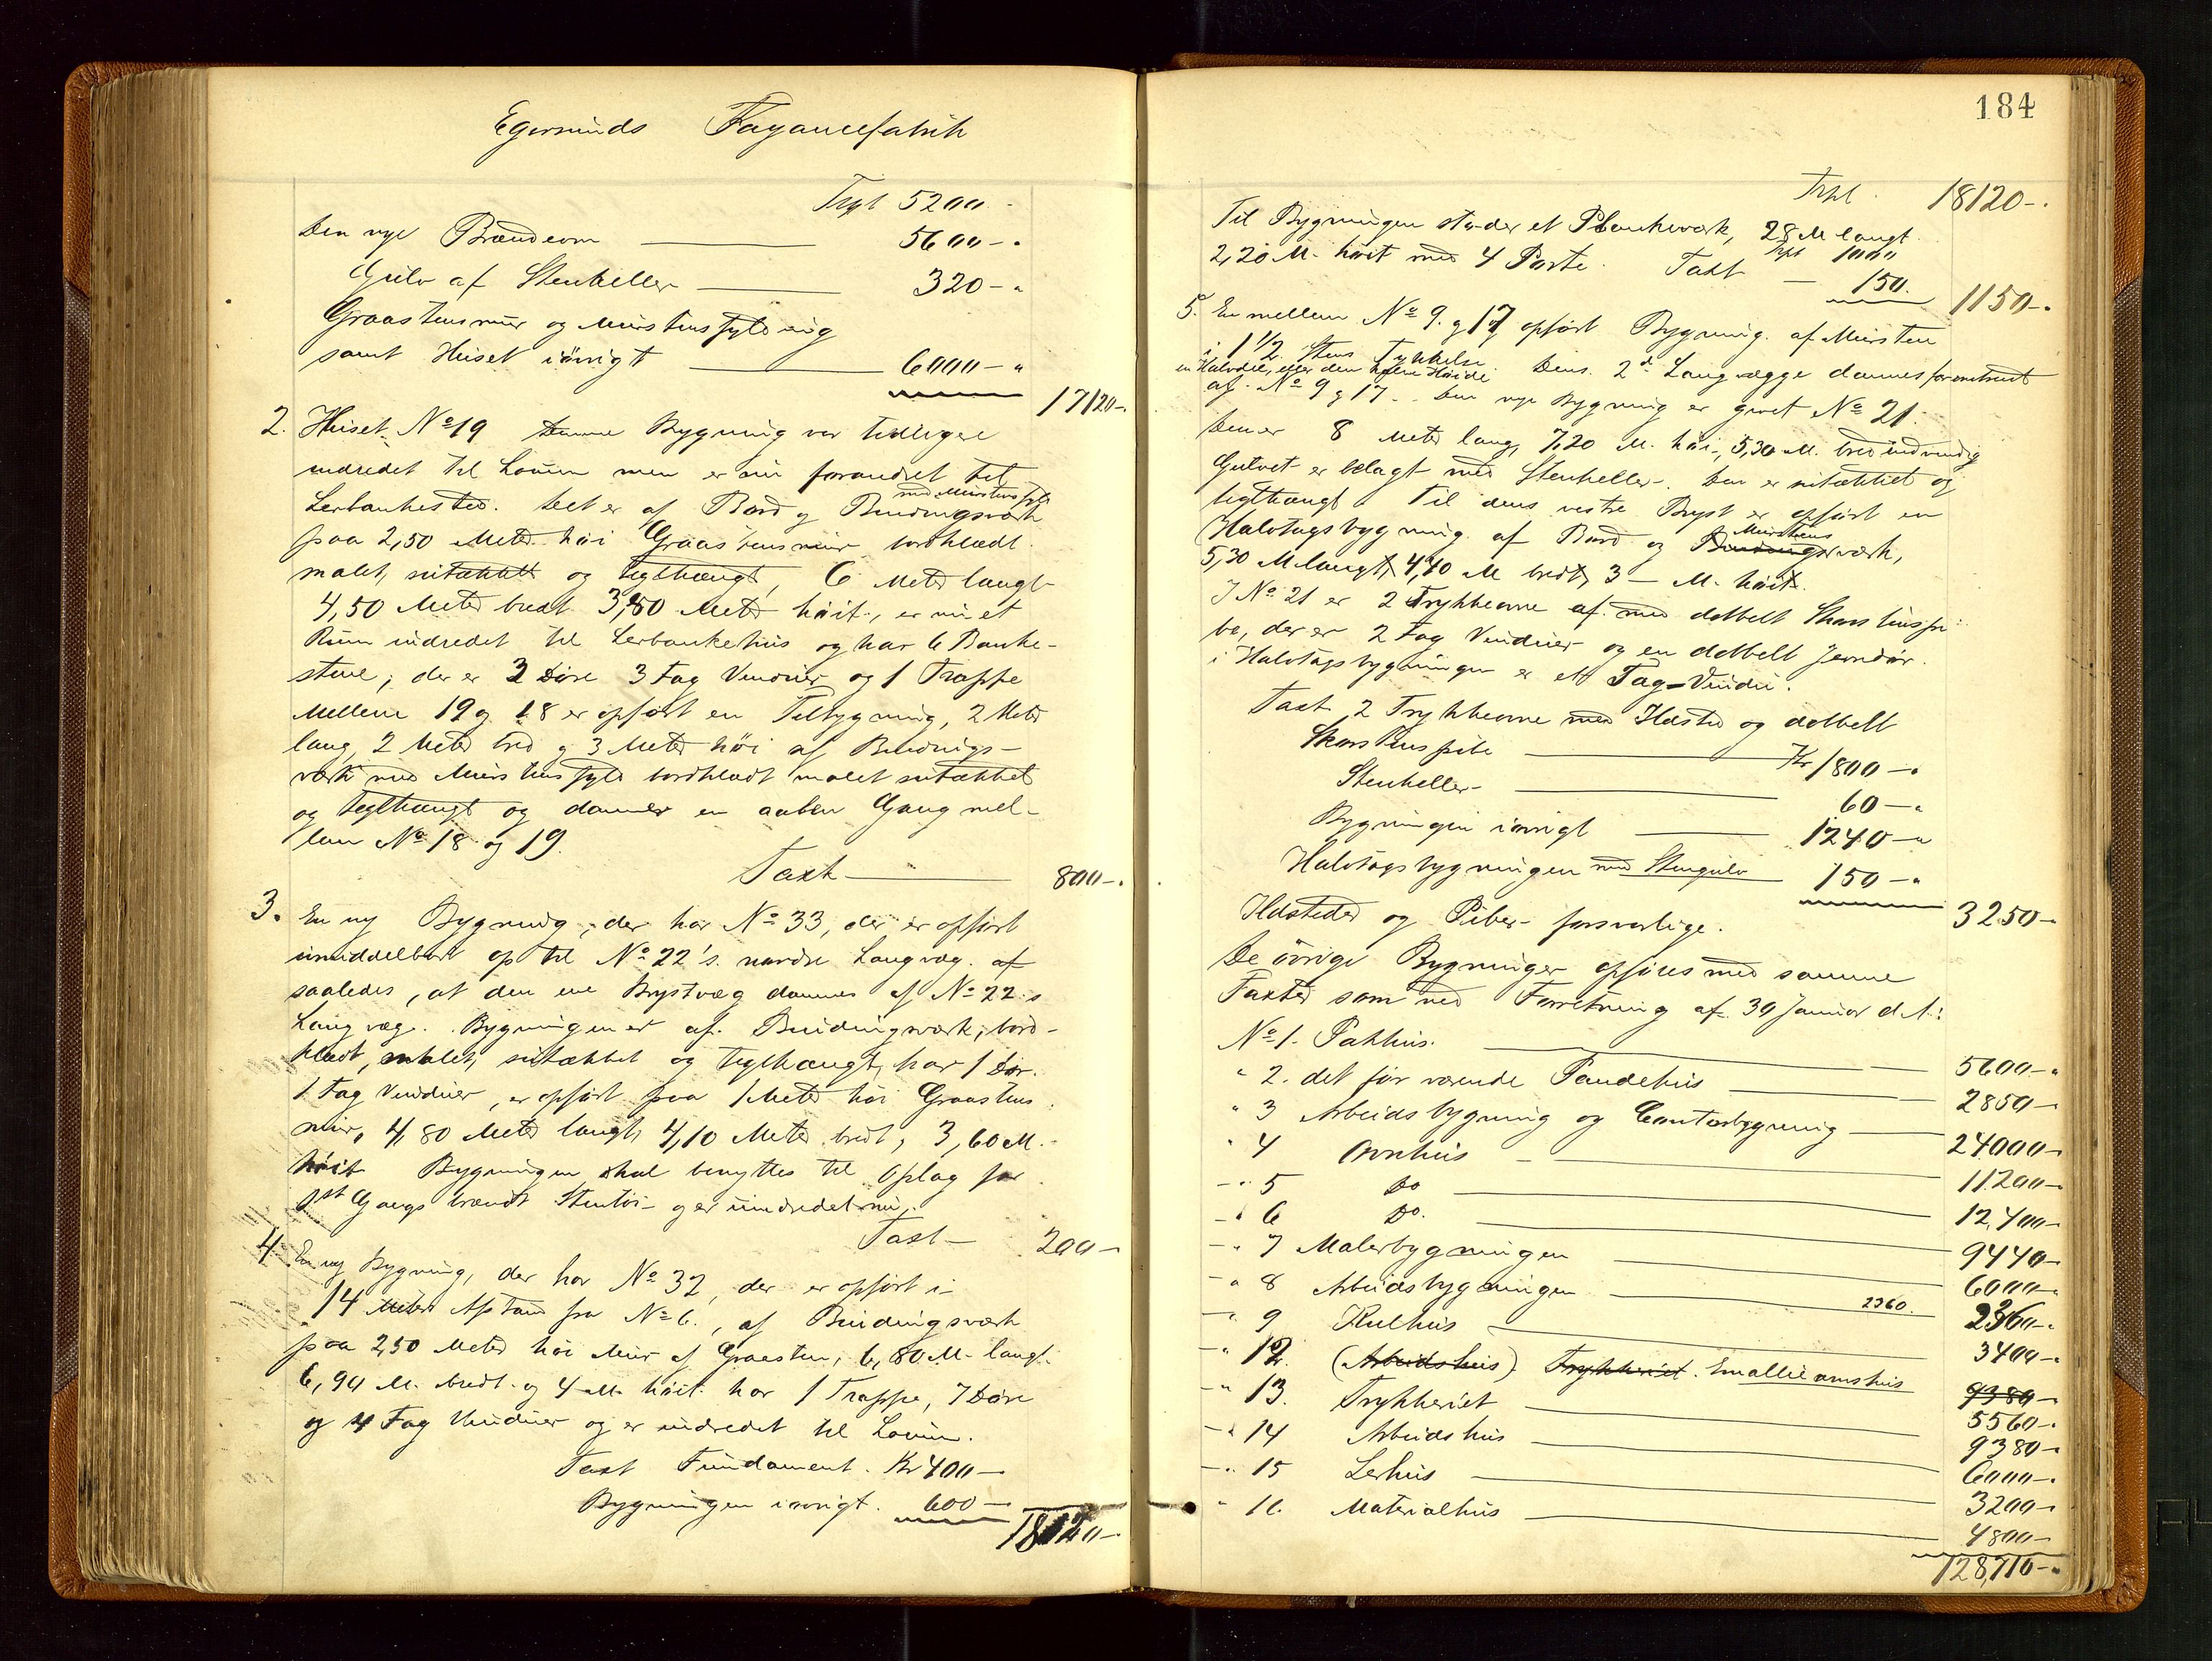 Egersunds Fayancefabrik
Trpt 5200 -
Den nye Brændeovn — 5600 - "
Gulv af Stenheller — 320 - "
Graastensmur og Murstensfyldning
samt Huset iövrigt — 6000 - "
17120 -.
2. Huset No 19 Denne Bygning var tidligere
indredet til Locum men er nu forandret til
med Murstensfyld
Lerbankested. Det er af Bord og Bindingsværk
paa 2,50 Meter höi Graastensmur bordklædt
malet, sutækket og teglhængt, 6 Meter langt
4,50 Meter bredt 3,50 Meter höit, er nu et
Rum indredet til Lerbankehus og har 6 Banke-
stene, der er 2 Döre 3 Fag Vinduer og 1 Trappe
Mellem 19 og 18 er opfört en Tilbygning, 2 Meter
lang, 2 Meter bred og 3 Meter höi af Bindings-
værk med Murstensfyld bordklædt malet sutækket
og teglhængt og danner en aaben Gang mel-
lem No 18 og 19.
Taxt — 800 -.
3. En ny Bygning, der har No 33, der er opfört
umiddelbart op til No 22's nordre Langvæg. af
saaledes, at den ene Brystvæg dannes af No 22's
Langvæg. Bygningen er af Bindingsværk, bord-
klædt, malet, sutækket og teglhængt, har 1 Dör.
1 Fag Vinduer, er opfört paa 1 Meter höi Graastens
mur, 4,80 Meter langt, 4,10 Meter bredt, 3,60 M.
höit Bygningen skal benyttes til Oplag for
1st Gangs brændt Stentöi og er uindredet nu.
Taxt — 200 -
4. En ny Bygning, der har No 32, der er opfört i
14 Meters Afstand fra No 6., af Bindingsværk
paa 2,50 Meter höi Mur af Graasten, 6,80 M. langt
6,90 M. bredt og 4 M. höit. har 1 Trappe, 7 Döre
og 4 Fag Vinduer og er indredet til Locum.
Taxt Fundament. Kr 400 -
Bygningen iövrigt. 600 -
18120 -
184
Trpt. 18120 -.
Til Bygningen stöder et Plankeværk, 28 M langt
2,20 M. höit med 4 Porte. Trpt 1000
Taxt — 150.
1150 -.
5. En mellem No 9. og 17 opfört Bygning. af Mursten
i 1 1/2 Stens Tykkelse
Dens 2de Langvægge dannes for omtrent
en Halvdel, efter den hele Höide
af No 9 og 17. Den nye Bygning er givet No 21.
Den er 8 Meter lang, 7,20 M. höi, 5,30 M. bred indvendig
Gulvet er belagt med Stenheller. Den er sutækket og
teglhængt. Til dens vestre Bryst er opfört en
Murstens
Halvtagsbygning af Bord og Bindingsværk,
5,30 M langt, 4,40 M bredt, 3 - M. höit.
I No 21 er 2 Trykkeovne af med dobbelt Skorstenspi-
be, der er 2 Fag Vinduer og en dobbelt Jerndör.
i Halvtagsbygningen er et Fag Vindu.
Taxt 2 Trykkeovne med Ildsted og dobbelt
Skorstenspibe — Kr 1800 - "
Stenheller — 60 - "
Bygningen iövrigt — 1240 - "
Halvtagsbygningen med Stengulv 150 - "
3250 -
Ildsteder og Piber forsvarlige.
De övrige Bygninger opföres med samme
Taxter som ved Forretning af 30 Januar d.A.:
No 1. Pakhus. — 5600 - "
" 2. det för værende Pandehus — 2850 -
" 3 Arbeidsbygning og Contorbygning — 24000 -
" 4 Ovnhus — 11200 -
" 5 Do — 12,400 -
" 6 Do. — 9440 -
" 7 Malerbygningen — 6000 -
" 8 Arbeidsbygningen — 2360. 2360 -
" 9 Kulhus — 3400 -
" 12. (Arbeidshus) Trykkeriet. Emallieovnshus 9380 -
5560 -
" 13. Trykkeriet — 9380 -
" 14 Arbeidshus — 6000 -
" 15 Lerhus — 3200 -
" 16 Materialhus — 4800 -
128,710 -